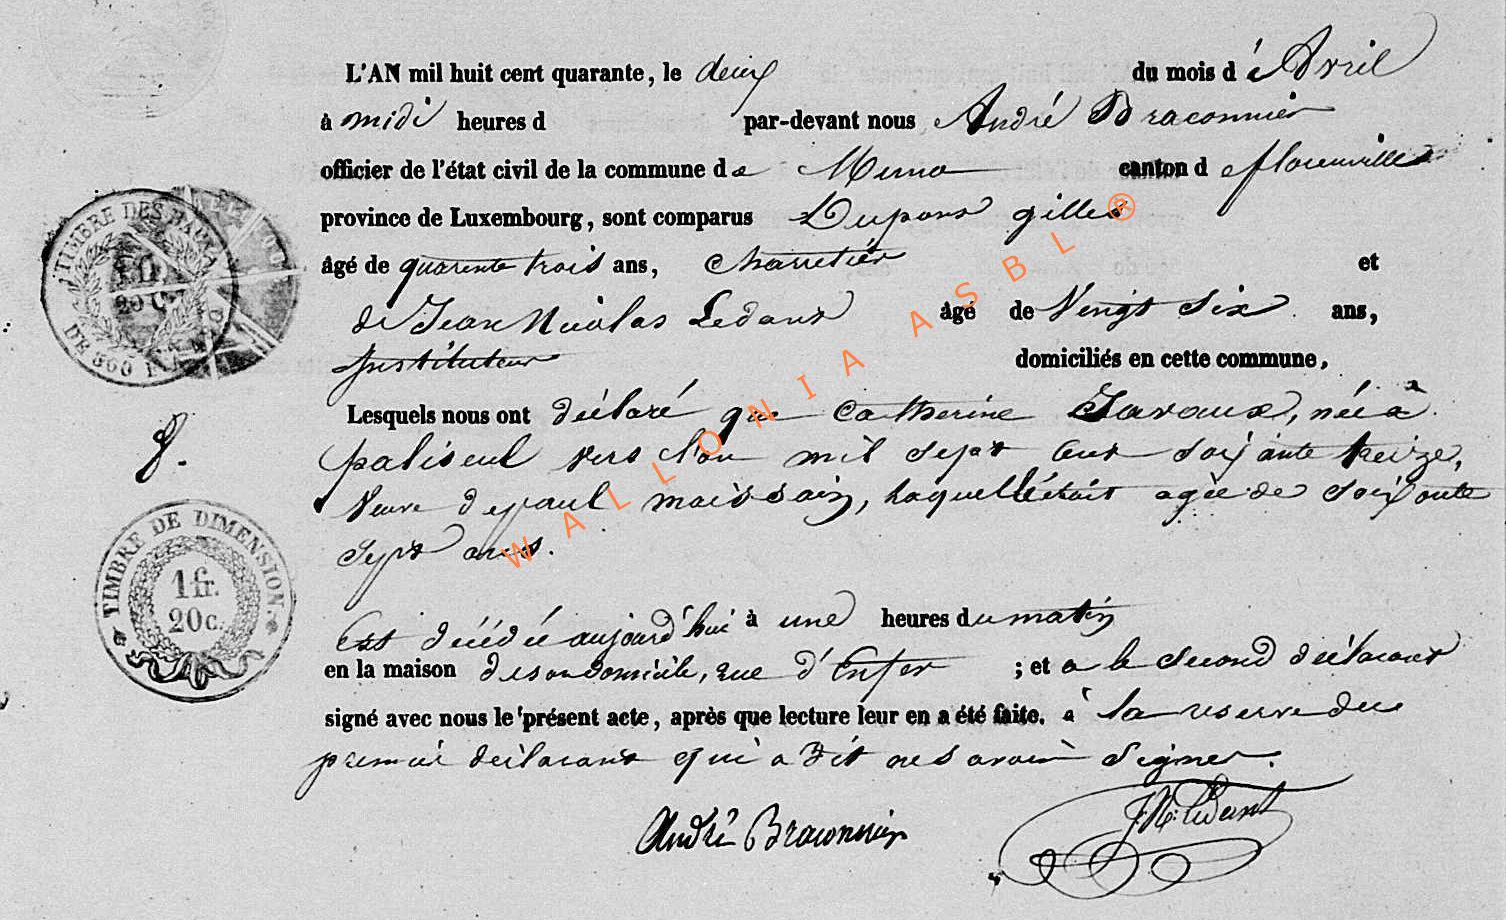 L'AN mil huit cent quarante, le deux du mois d'Avril
à midi heures d par-devant nous André Braconnier
officier de l'état civil de la commune de Muno canton d florenville
province de Luxembourg, sont comparus Dupont gilles
âgé de quarente trois ans, charretier et
de Jean Nicolas Ledant âgé de Vingt Six ans,
Instituteur domiciliés en cette commune,
Lesquels nous ont déclaré que Catherine Javaux, née à
paliseul vers l'an mil sept cent soixante treize,
Veuve de paul maissain, laquelle était agée de soixante
sept ans.
Est décédée aujourd'hui à une heures du matin
en la maison de son domicile, rue d'Enfer ; et a le second déclarant
signé avec nous le présent acte, après que lecture leur en a été faite. à la reserve du
premier déclarant qui a dit ne savoir signer.
André Braconnier J. N. Ledant
8.
TIMBRE DES
20 C.
DE 500 F
TIMBRE DE DIMENSION.
1 fr.
20 c.
WALLONIA ASBL ®